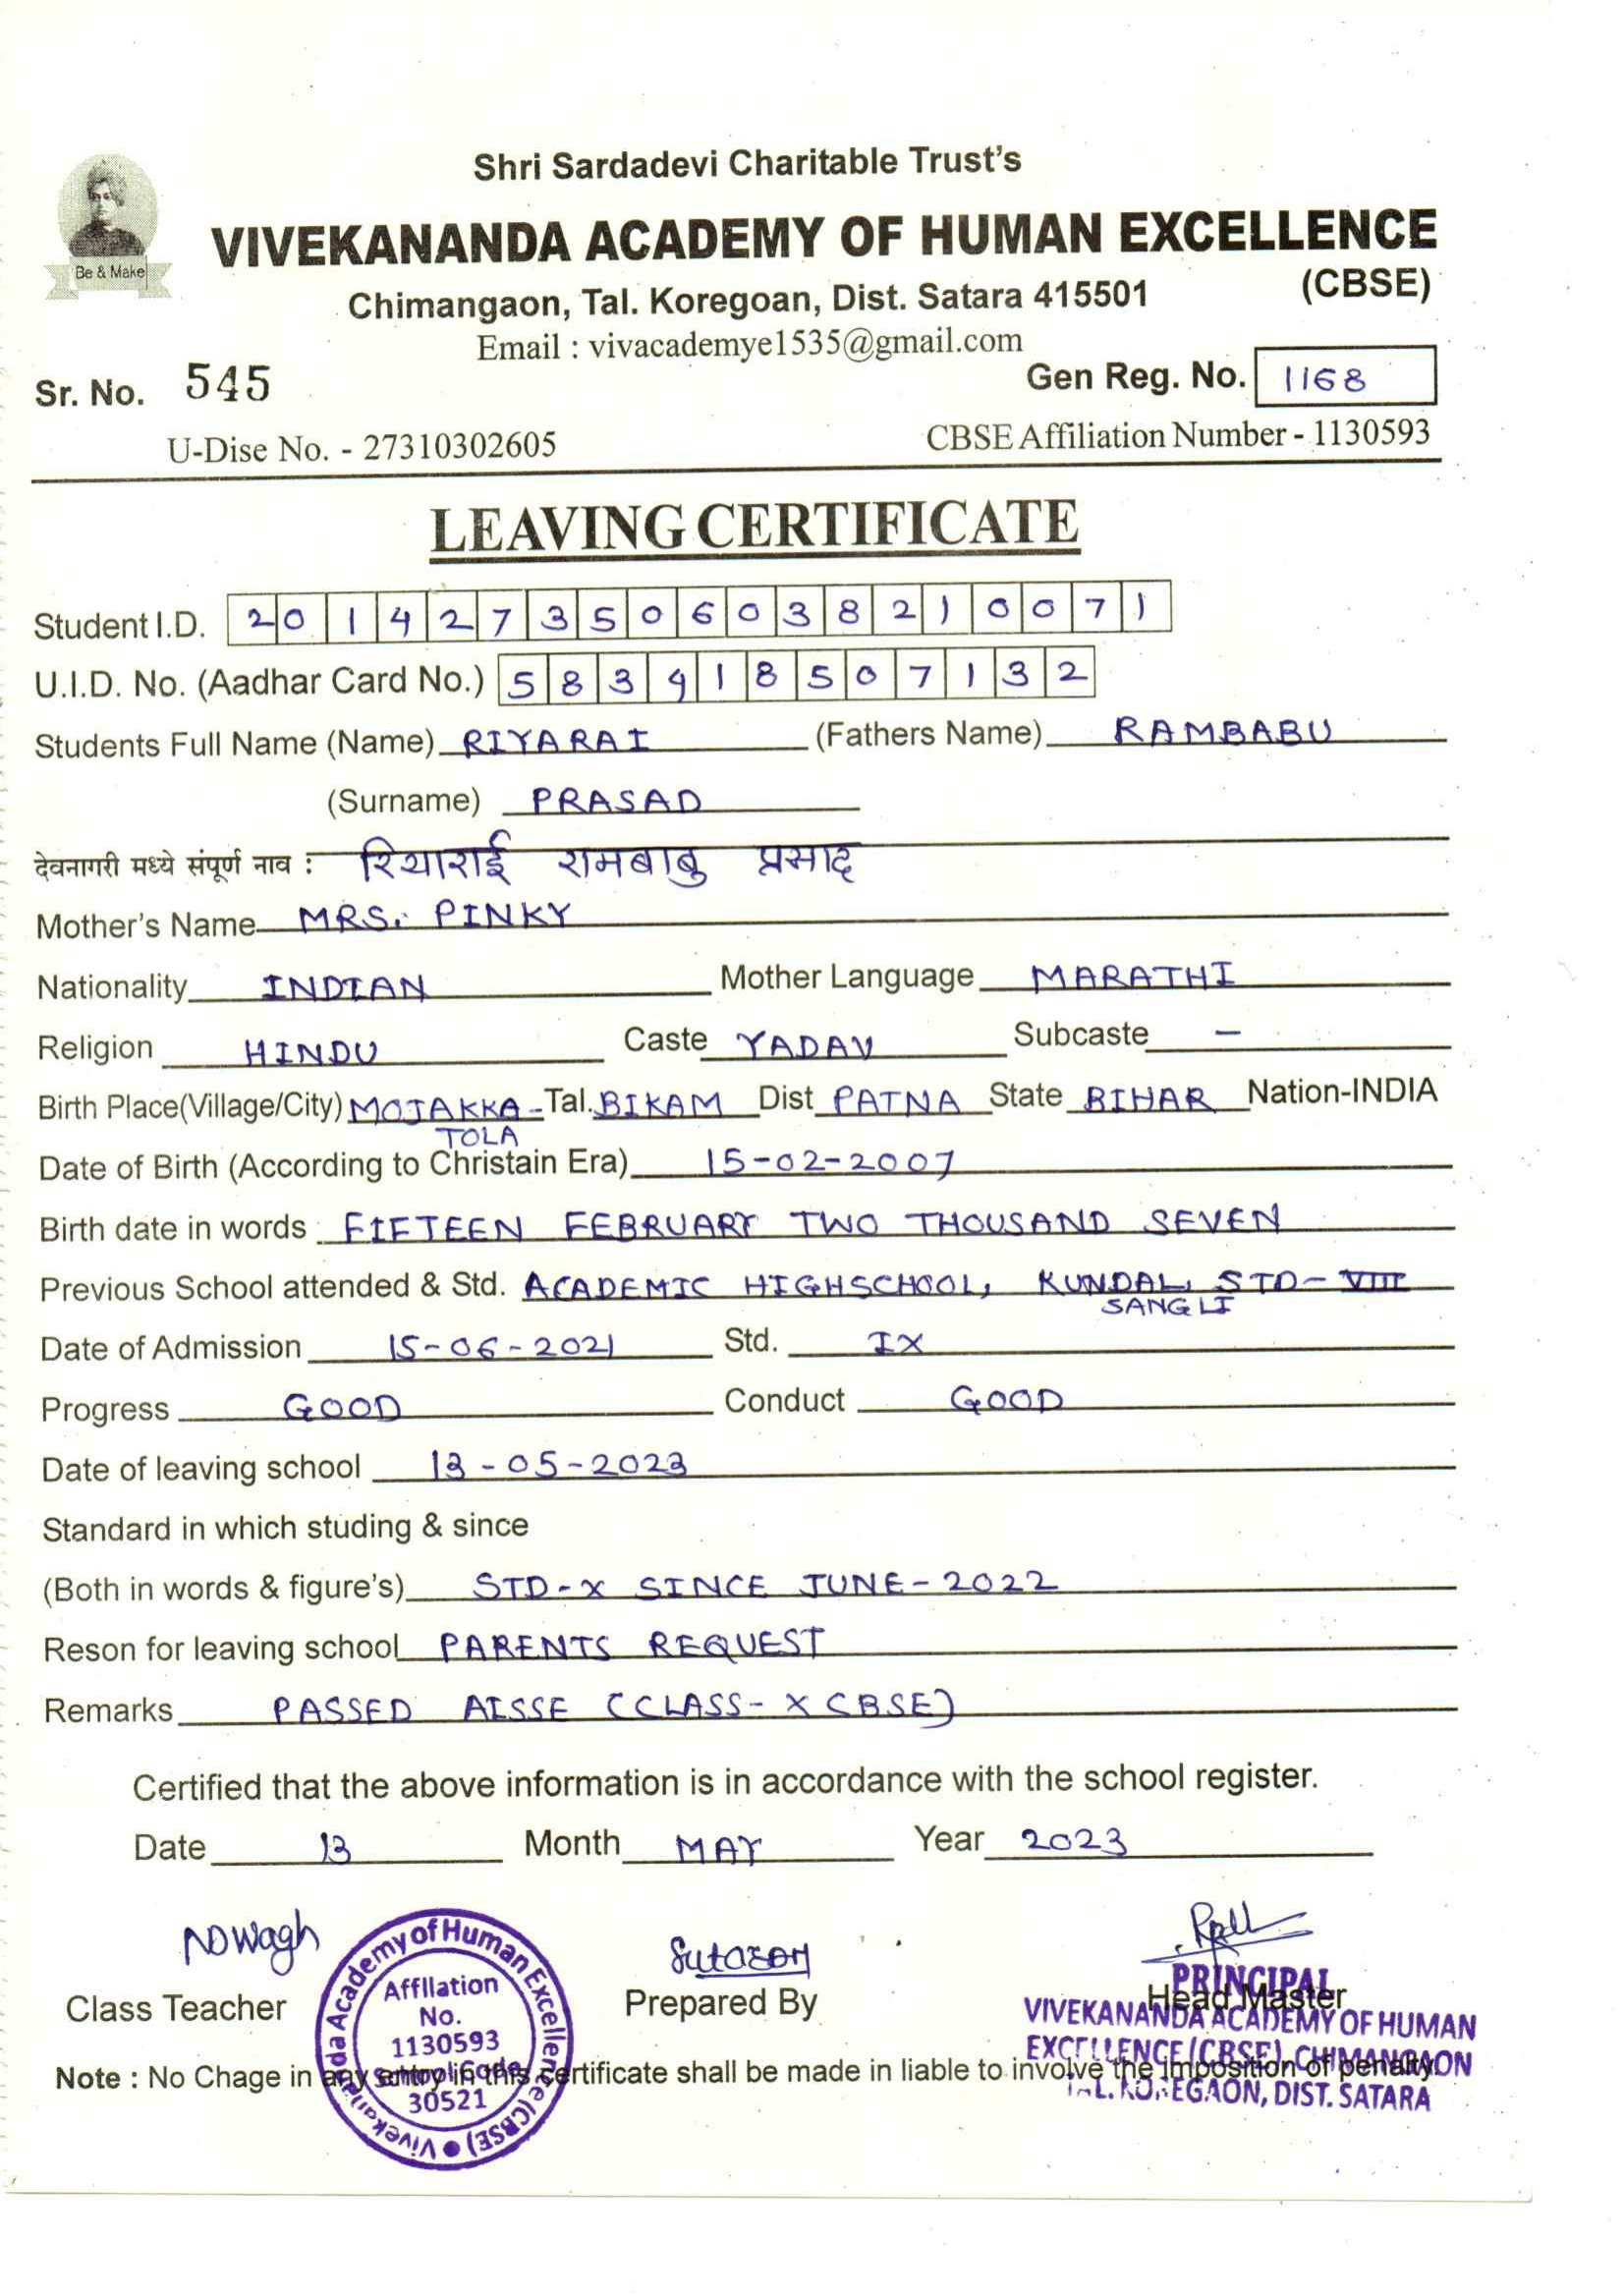 Shri Sardadevi Charitable Trust's
Be & Make
VIVEKANANDA ACADEMY OF HUMAN EXCELLENCE
(CBSE)
Chimangaon, Tal. Koregoan, Dist. Satara 415501
Email : vivacademye1535@gmail.com
Sr. No. 545 Gen Reg. No. 1168
U-Dise No. - 27310302605 CBSE Affiliation Number - 1130593
LEAVING CERTIFICATE
Student I.D. 2014273506038210071
U.I.D. No. (Aadhar Card No.) 583918507132
Students Full Name (Name) RIYARAI (Fathers Name) RAMBABU
(Surname) PRASAD
देवनागरी मध्ये संपूर्ण नाव : रियाराई रामबाबु प्रसाद
Mother's Name MRS. PINKY
Nationality INDIAN Mother Language MARATHI
Religion HINDU Caste YADAV Subcaste –
Birth Place(Village/City) MOJAKKA Tal. BIKAM Dist PATNA State BIHAR Nation-INDIA
TOLA
Date of Birth (According to Christain Era) 15-02-2007
Birth date in words FIFTEEN FEBRUARY TWO THOUSAND SEVEN
Previous School attended & Std. ACADEMIC HIGHSCHOOL, KUNDAL, STD- VIII
SANGLI
Date of Admission 15-06-2021 Std. IX
Progress GOOD Conduct GOOD
Date of leaving school 13-05-2023
Standard in which studing & since
(Both in words & figure's) STD-X SINCE JUNE-2022
Reson for leaving school PARENTS REQUEST
Remarks PASSED AISSE (CLASS-X CBSE)
Certified that the above information is in accordance with the school register.
Date 13 Month MAY Year 2023
NDWagh
Class Teacher
Vivekananda Academy of Human Excellence (CBSE)
Affilation
No.
1130593
School Code
30521
Prepared By
PRINCIPAL
Head Master
VIVEKANANDA ACADEMY OF HUMAN
EXCELLENCE (CBSE), CHIMANGAON
TAL. KOREGAON, DIST. SATARA
Note : No Chage in any entry in this certificate shall be made in liable to involve the imposition of penalty.